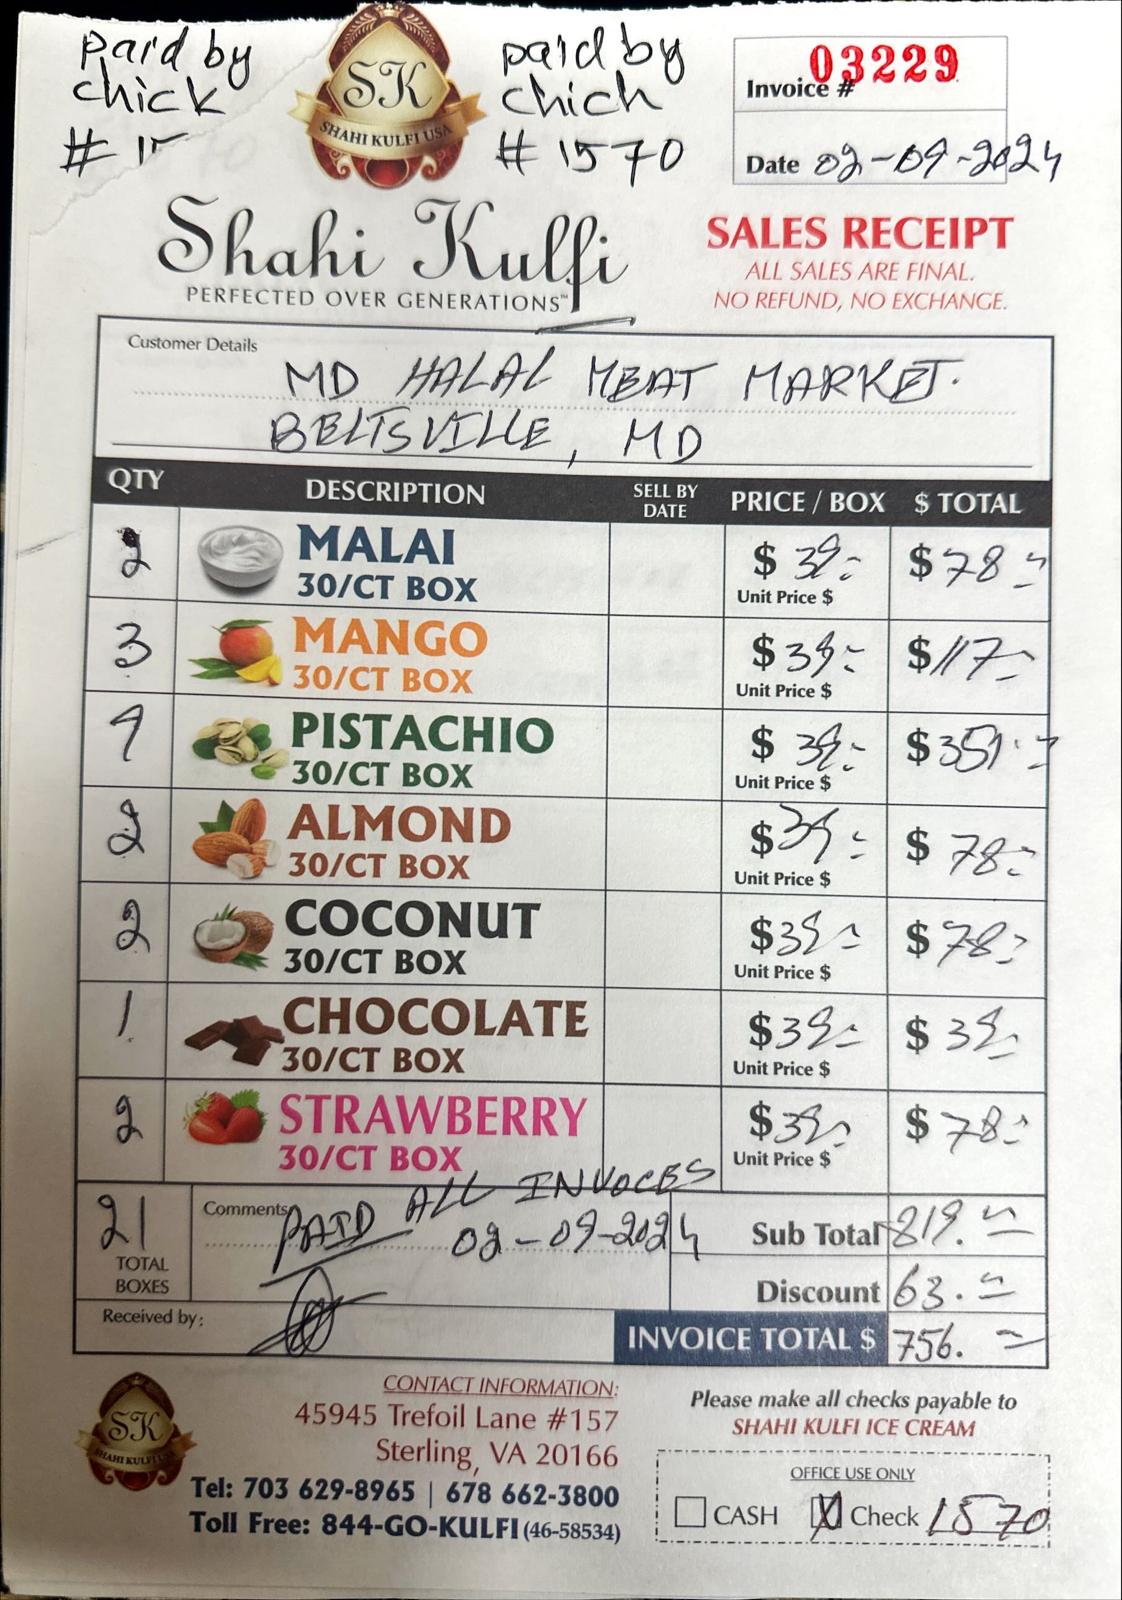 paid by
chick
# 15
SK
SHAHI KULFI USA
paid by
chich
# 1570
Invoice # 03229
Date 02-09-2024
Shahi Kulfi
PERFECTED OVER GENERATIONS™
SALES RECEIPT
ALL SALES ARE FINAL.
NO REFUND, NO EXCHANGE.
Customer Details
MD HALAL MEAT MARKET.
BELTSVILLE, MD
QTY DESCRIPTION SELL BY DATE PRICE / BOX $ TOTAL
2 MALAI $ 39.- $ 78.-
30/CT BOX Unit Price $
3 MANGO $ 39.- $ 117-
30/CT BOX Unit Price $
9 PISTACHIO $ 39.- $ 351.-
30/CT BOX Unit Price $
2 ALMOND $ 39.- $ 78.-
30/CT BOX Unit Price $
2 COCONUT $ 39.- $ 78.-
30/CT BOX Unit Price $
1 CHOCOLATE $ 39.- $ 39.-
30/CT BOX Unit Price $
2 STRAWBERRY $ 39.- $ 78.-
30/CT BOX Unit Price $
21 TOTAL BOXES
Comments
PAID ALL INVOCES
02-09-2024
Sub Total 819.-
Discount 63.-
Received by:
INVOICE TOTAL $ 756.-
SK
SHAHI KULFI USA
CONTACT INFORMATION:
45945 Trefoil Lane #157
Sterling, VA 20166
Tel: 703 629-8965 | 678 662-3800
Toll Free: 844-GO-KULFI (46-58534)
Please make all checks payable to
SHAHI KULFI ICE CREAM
OFFICE USE ONLY
CASH X Check 1570